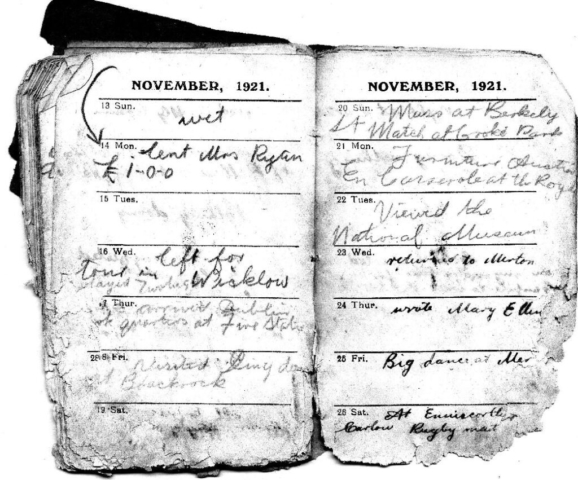 NOVEMBER, 1921.
13 Sun.
wet
14 Mon. Lent Mrs Ryan
£ 1-0-0
15 Tues.
16 Wed. left for
tour in Wicklow
Thur. Dublin
quarters at
Fri. visited
at Blackrock
19 Sat.
NOVEMBER, 1921.
20 Sun. Mass at Berkely
St Match at Croke Park
21 Mon. Furniture
En Casserole at th Royal
22 Tues.
Viewed the
National Museum
23 Wed. returned to Merton
24 Thur. wrote Mary Ellen
25 Fri. Big dance at Mer
26 Sat. At Enniscorthy
Carlow Rugby mat